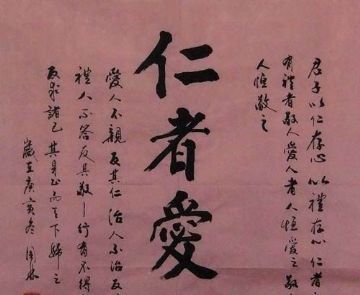 君子以仁存心以禮存心仁者
有禮者敬人愛人者人恒愛之敬
人恒敬之
仁者愛
愛人不親反其仁治人不治反
禮人不答反其敬行有不得
反求諸己其身正而天下歸之
歲在庚寅冬